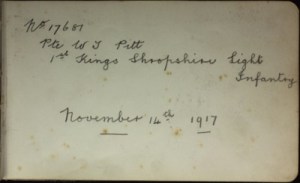 No 17681
Pte W J Pitt
1st Kings Shropshire Light
Infantry
November 14th 1917